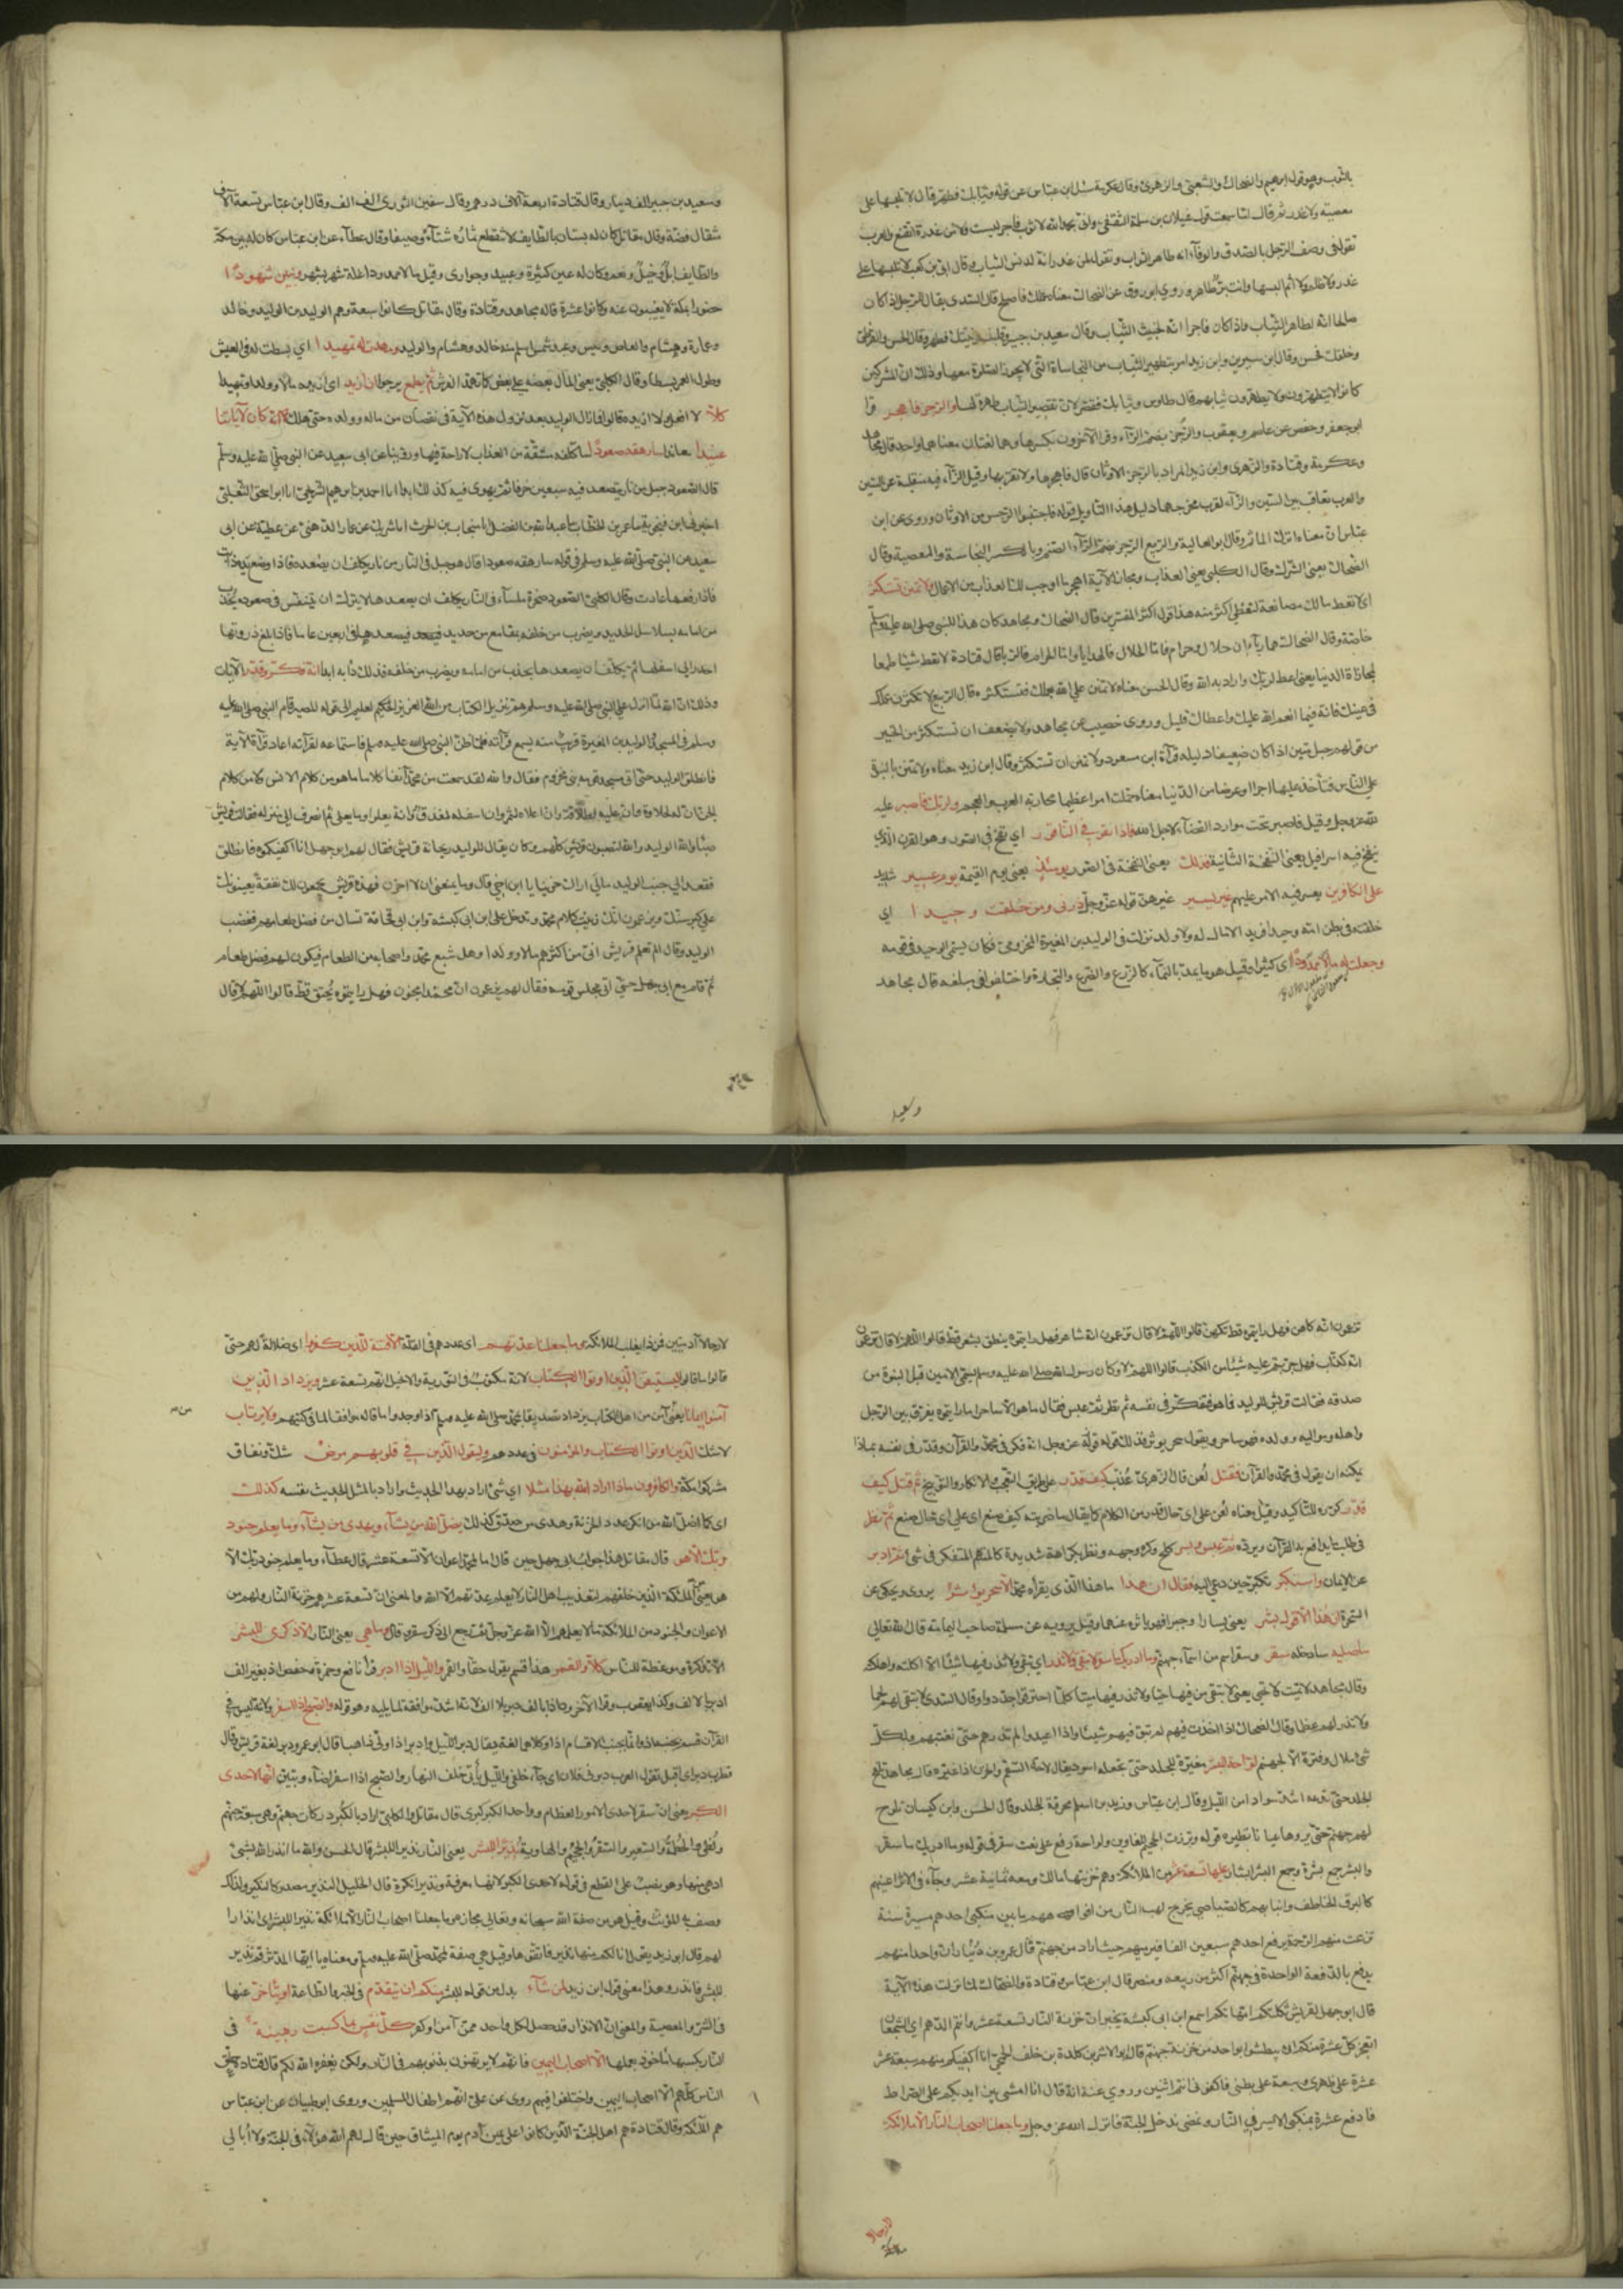 بالثوب وهو قول ابرهيم والضحاك والشعبي والزهري وقال عكرمة سئل ابن عباس عن قوله وثيابك فطهر قال لا تلبسها على
معصية ولا غدر ثم قال اما سمعت قول غيلان بن سلمة الثقفي واني بحمد الله لا ثوب فاجر لبست ولا من غدرة اتقنع والعرب
تقول في وصف الرجل بالصدق والوفاء انه طاهر الثياب وتقول لمن غدر انه لدنس الثياب وقال ابي بن كعب لا تلبسها على
غدر ولا ظلم ولا اثم البسها وانت بر طاهر وروي ابو روق عن الضحاك معناه عملك فاصلح قال السدي يقال للرجل اذا كان
صالحا انه لطاهر الثياب واذا كان فاجرا انه لخبيث الثياب وقال سعيد بن جبير وقلبك وبيتك فطهر وقال الحسن والقرظي
وخلقك فحسن وقال ابن سيرين وابن زيد امر بتطهير الثياب من النجاسات التي لا يجوز الصلوة معها وذلك ان المشركين
كانوا لا يتطهرون ولا يطهرون ثيابهم وقال طاوس وثيابك فقصر لان تقصير الثياب طهرة لها والرجز فاهجر قرا
ابو جعفر وحفص عن عاصم ويعقوب والرجز بضم الراء وقرا الآخرون بكسرها وهما لغتان معناهما واحد قال مجاهد
وعكرمة وقتادة والزهري وابن زيد المراد بالرجز الاوثان قال فاهجرها ولا تقربها وقيل الزاء فيه منقلبة عن السين
والعرب تعاقب بين السين والزاء لقرب مخرجهما ودليل هذا التاويل قوله فاجتنبوا الرجس من الاوثان وروي عن ابن
عباس ان معناه اترك الماثم وقال ابو العالية والربيع الرجز بضم الراء الصنم وبالكسر النجاسة والمعصية وقال
الضحاك يعني الشرك وقال الكلبي يعني العذاب ومجاز الآية اهجر ما اوجب لك العذاب من الاعمال ولا تمنن تستكثر
اي لا تعط مالك مصانعة لتعطي اكثر منه هذا قول اكثر المفسرين قال الضحاك ومجاهد كان هذا للنبي صلى الله عليه وسلم
خاصة وقال الضحاك هما رباآن حلال وحرام فاما الحلال فالهدايا واما الحرام فالربا قال قتادة لا تعط شيئا طمعا
لمجازاة الدنيا يعني اعط لربك واراد به الله وقال الحسن معناه لا تمنن على الله بعملك فتستكثره قال الربيع لا تكثرن عملك
في عينك فانه فيما انعم الله عليك واعطاك قليل وروى خصيب عن مجاهد ولا تضعف ان تستكثر من الخير
من قولهم حبل متين اذا كان ضعيفا دليله قرآة ابن مسعود ولا تمنن ان تستكثر وقال ابن زيد معناه ولا تمنن بالنبوة
على الناس فتأخذ عليها اجرا وعرضا من الدنيا معناه حملت امرا عظيما محاربة العرب والعجم ولربك فاصبر عليه
لله عز وجل وقيل فاصبر تحت موارد القضآء لاجل الله فاذا نقر في الناقور اي نفخ في الصور وهو القرن الذي
ينفخ فيه اسرافيل يعني النفخة الثانية فذلك يعني النفخة في الصور يومئذ يعني يوم القيمة يوم عسير شديد
على الكافرين يعسر فيه الامر عليهم غير يسير غير هين قوله عز وجل ذرني ومن خلقت وحيدا اي
خلقته في بطن امه وحيدا فريدا لا مال له ولا ولد نزلت في الوليد بن المغيرة المخزومي فكان يسمى الوحيد في قومه
وجعلت له مالا ممدودا اي كثيرا وقيل هو ما يمد بالنمآء كالزرع والضرع والتجارة واختلفوا في مبلغه قال مجاهد
وسعيد
وسعيد بن جبير الف دينار وقال قتادة اربعة آلاف درهم وقال سفين الثوري الف الف وقال ابن عباس تسعة آلاف
مثقال فضة وقال مقاتل كان له بستان بالطايف لا تنقطع ثماره شتآء وصيفا وقال عطآء عن ابن عباس كان له بين مكة
والطايف ابل وخيل ونعم وكان له عين كثيرة وعبيد وجواري وقيل مالا ممدودا غلة شهر بشهر وبنين شهودا
حضورا بمكة لا يغيبون عنه وكانوا عشرة قاله مجاهد وقتادة وقال مقاتل كانوا سبعة وهم الوليد بن الوليد وخالد
وعمارة وهشام والعاص وقيس وعبد شمس اسلم منه خالد وهشام والوليد ومهدت له تمهيدا اي بسطت له في العيش
وطول العمر بسطا وقال الكلبي يعني المال بعضه على بعض كما تمهد الفرش ثم يطمع يرجو ان ازيد اي ان ازيد مالا وولدا وتمهيدا
كلا لا افعل ولا ازيده قالوا فما زال الوليد بعد نزول هذه الآية في نقصان من ماله وولده حتى هلك انه كان لآياتنا
عنيدا معاندا سارهقه صعودا ساكلفه مشقة من العذاب لا راحة فيها وروينا عن ابي سعيد عن النبي صلى الله عليه وسلم
قال الصعود جبل من نار يتصعد فيه سبعين خريفا ثم يهوي فيه كذلك ابدا انا احمد بن ابرهيم الشريحي انا ابو اسحق الثعلبي
اخبرني ابن فنجويه عمر بن الخطاب عبد الله بن الفضل منجاب بن الحرث انا شريك عن عمار الدهني عن عطية عن ابي
سعيد عن النبي صلى الله عليه وسلم في قوله سارهقه صعودا قال هو جبل في النار من نار يكلف ان يصعده فاذا وضع يده ذابت
فاذا رفعها عادت وقال الكلبي الصعود صخرة ملسآء في النار يكلف ان يصعدها لا يترك ان يتنفس في صعوده يجذب
من امامه بسلاسل الحديد ويضرب من خلفه بمقامع من حديد فيصعدها في اربعين عاما فاذا بلغ ذروتها
احدر الى اسفلها ثم يكلف ان يصعدها يجذب من امامه ويضرب من خلفه فذلك دأبه ابدا انه فكر وقدر الآيات
وذلك ان الله لما انزل على النبي صلى الله عليه وسلم حم تنزيل الكتاب من الله العزيز الحكيم العليم الى قوله المصير قام النبي صلى الله عليه
وسلم في المسجد والوليد بن المغيرة قريب منه يسمع قرآته فلما فطن النبي صلى الله عليه وسلم لاستماعه لقرآته اعاد قرآة الآية
فانطلق الوليد حتى اتى مجلس قومه بني مخزوم فقال والله لقد سمعت من محمد آنفا كلاما ما هو من كلام الانس ولا من كلام
الجن ان له لحلاوة وان عليه لطلاوة وان اعلاه لمثمر وان اسفله لمغدق وانه يعلو وما يعلى ثم انصرف الى منزله فقالت قريش
صبأ والله الوليد والله لتصبون قريش كلهم وكان يقال للوليد ريحانة قريش فقال لهم ابو جهل انا اكفيكموه فانطلق
فقعد الى جنب الوليد مالي اراك حزينا يا ابن اخي قال وما يمنعني ان لا احزن فهذه قريش يجمعون لك نفقة يعينونك
على كبر سنك ويزعمون انك زينت كلام محمد وتدخل على ابن ابي كبشة وابن ابي قحافة تسال من فضل طعامهم فغضب
الوليد وقال الم تعلم قريش اني من اكثرهم مالا وولدا وهل شبع محمد واصحابه من الطعام فيكون لهم فضل طعام
ثم قام مع ابي جهل حتى اتى مجلس قومه فقال لهم يزعمون ان محمدا مجنون فهل رايتموه يخنق قط قالوا اللهم لا قال
تزعمون انه كاهن فهل رايتموه قط تكهن قالوا اللهم لا قال تزعمون انه شاعر فهل رايتموه ينطق بشعر قط قالوا اللهم لا قال تزعمون
انه كذاب فهل جربتم عليه شيئا من الكذب قالوا اللهم لا وكان رسول الله صلى الله عليه وسلم يسمى الامين قبل النبوة من
صدقه فقالت قريش للوليد فما هو ففكر في نفسه ثم نظر ثم عبس فقال ما هو الا ساحر اما رايتموه يفرق بين الرجل
واهله ومواليه وولده فهو ساحر وما يقول سحر يوثر فذلك قوله عز وجل انه فكر في محمد والقرآن وقدر في نفسه بماذا
يمكنه ان يقول في محمد والقرآن فقتل لعن قال الزهري عذب كيف قدر على طريق التعجب والانكار والتوبيخ ثم قتل كيف
قدر كرره للتاكيد وقيل معناه لعن على اي حال قدر من الكلام كما يقال لاضربنه كيف صنع اي على اي حال صنع ثم نظر
في طلب ما يدافع به القرآن ويرده ثم عبس وبسر كلح وكره وجهه ونظر بكراهة شديدة كالمهتم المتفكر في شيء ثم ادبر
عن الايمان واستكبر تكبر حين دعي اليه فقال ان هذا ما هذا الذي يقرأه محمد الا سحر يؤثر يروى ويحكى عن
السحرة ان هذا الا قول البشر يعني يسارا وجبرا فهو ياثره عنهما وقيل يرويه عن مسيلمة صاحب اليمامة قال الله تعالى
ساصليه سادخله سقر وسقر اسم من اسمآء جهنم وما ادريك ما سقر لا تبقي ولا تذر اي لا تبقي ولا تذر فيها شيئا الا اكلته واهلكته
وقال مجاهد لا تميت ولا تحيي يعني لا تبقي من فيها حيا ولا تذر من فيها ميتا كلما احترقوا جددوا وقال السدي لا تبقي لهم لحما
ولا تذر لهم عظما وقال الضحاك اذا اخذت فيهم لم تبق فيهم شيئا واذا اعيدوا لم تذرهم حتى تفنيهم ولكل
شيء ملال وفترة الا لجهنم لواحة للبشر مغيرة للجلد حتى تجعله اسود يقال لاحه السقم والحزن اذا غيره قال مجاهد تلفح
الجلد حتى تدعه اشد سوادا من الليل وقال ابن عباس وزيد بن اسلم محرقة للجلد وقال الحسن وابن كيسان تلوح
لهم جهنم حتى يروها عيانا نظيره قوله وبرزت الجحيم للغاوين ولواحة رفع على نعت سقر في قوله وما ادريك ما سقر
والبشر جمع بشرة وجمع البشر ابشار عليها تسعة عشر من الملائكة وهم خزنتها مالك ومعه ثمانية عشر وجآء في الاثر اعينهم
كالبرق الخاطف وانيابهم كالصياصي يخرج لهب النار من افواههم ما بين منكبي احدهم مسيرة سنة
نزعت منهم الرحمة يرفع احدهم سبعين الفا فيرميهم حيث اراد من جهنم قال عمرو بن دينار ان واحدا منهم
يدفع بالدفعة الواحدة في جهنم اكثر من ربيعة ومضر قال ابن عباس وقتادة والضحاك لما نزلت هذه الآية
قال ابو جهل لقريش ثكلتكم امهاتكم اسمع ابن ابي كبشة يخبر ان خزنة النار تسعة عشر وانتم الدهم اي الشجعان
افيعجز كل عشرة منكم ان يبطشوا بواحد من خزنة جهنم قال ابو الاشدين كلدة بن خلف الجمحي انا اكفيكم منهم سبعة عشر
عشرة على ظهري وسبعة على بطني فاكفوني انتم اثنين وروي عنه انه قال انا امشي بين ايديكم على الصراط
فادفع عشرة بمنكبي الايسر في النار ونمضي ندخل الجنة فانزل الله عز وجل وما جعلنا اصحاب النار الا ملائكة
لا رجالا
لا رجالا آدميين فمن ذا يغلب الملائكة وما جعلنا عدتهم اي عددهم في القلة الا فتنة للذين كفروا اي ضلالة لهم حتى
قالوا ما قالوا ليستيقن الذين اوتوا الكتاب لانه مكتوب في التورية والانجيل انهم تسعة عشر ويزداد الذين
آمنوا ايمانا يعني آمن من اهل الكتاب يزداد تصديقا بمحمد صلى الله عليه وسلم اذ اوجدوا ما قاله موافقا لما في كتبهم ولا يرتاب
لا شك الذين اوتوا الكتاب والمؤمنون في عددهم وليقول الذين في قلوبهم مرض شك ونفاق
مشركوا مكة والكافرون ماذا اراد الله بهذا مثلا اي شيء اراد بهذا الحديث واراد بالمثل الحديث نفسه كذلك
اي كما اضل الله من انكر عدد الخزنة وهدى من صدق كذلك يضل الله من يشآء ويهدي من يشآء وما يعلم جنود
ربك الا هو قال مقاتل هذا جواب ابي جهل حين قال اما لمحمد اعوان الا تسعة عشر قال عطآء وما يعلم جنود ربك الا
هو يعني الملئكة الذين خلقهم لتعذيب اهل النار لا يعلم عدتهم الا الله والمعنى ان تسعة عشر هم خزنة النار ولهم من
الاعوان والجنود من الملائكة ما لا يعلمهم الا الله عز وجل ثم رجع الى ذكر سقر وقال وما هي يعني النار الا ذكرى للبشر
الا تذكرة وموعظة للناس كلا والقمر هذا قسم يقول حقا والقمر والليل اذا ادبر قرأ نافع وحمزة وحفص اذ بغير الف
ادبر بالالف وكذا يعقوب وقرا الآخرون اذا بالف دبر بلا الف لانه اشد موافقة لما يليه وهو قوله والصبح اذا اسفر ولانه ليس في
القرآن قسم بجنبه اذ وانما يجنب الاقسام اذا وكلاهما لغة يقال دبر الليل وادبر اذا ولى ذاهبا قال ابو عمرو دبر لغة قريش وقال
قطرب دبر اي اقبل تقول العرب دبرني فلان اي جآء خلفي والليل يأتي خلف النهار والصبح اذا اسفر اضآء وتبين انها لاحدى
الكبر يعني ان سقر لاحدى الامور العظام وواحد الكبر كبرى قال مقاتل والكلبي اراد بالكبر دركات جهنم وهي سبعة جهنم
ولظى والحطمة والسعير والسقر والجحيم والهاوية نذيرا للبشر يعني النار نذيرا للبشر قال الحسن والله ما انذر الله بشيء
ادهى منها وهو نصب على القطع في قوله لاحدى الكبر لانها معرفة ونذيرا نكرة قال الخليل النذير مصدر كالنكير ولذلك
وصف به المؤنث وقيل هو من صفة الله سبحانه وتعالى مجازه وما جعلنا اصحاب النار الا ملائكة نذيرا للبشر اي انذارا
لهم قال ابو زيد يقول انا لكم منها نذير فاتقوها وقيل هي صفة لمحمد صلى الله عليه وسلم ومعناه يا ايها المدثر قم نذير
للبشر فانذر وهذا معنى قول ابن زيد لمن شآء بدل من قوله للبشر منكم ان يتقدم في الخير والطاعة او يتاخر عنها
في الشر والمعصية والمعنى ان الانذار قد حصل لكل واحد ممن آمن او كفر كل نفس بما كسبت رهينة في
النار بكسبها ماخوذ بعملها الا اصحاب اليمين فانهم لا يرتهنون بذنوبهم في النار ولكن يغفره الله لهم قال قتادة علق
الناس كلهم الا اصحاب اليمين واختلفوا فيهم روى عن علي انهم اطفال المسلمين وروى ابو ظبيان عن ابن عباس
هم الملئكة وقال قتادة هم اهل الجنة الذين كانوا على يمين آدم يوم الميثاق حين قال لهم الله هؤلآء في الجنة ولا ابالي